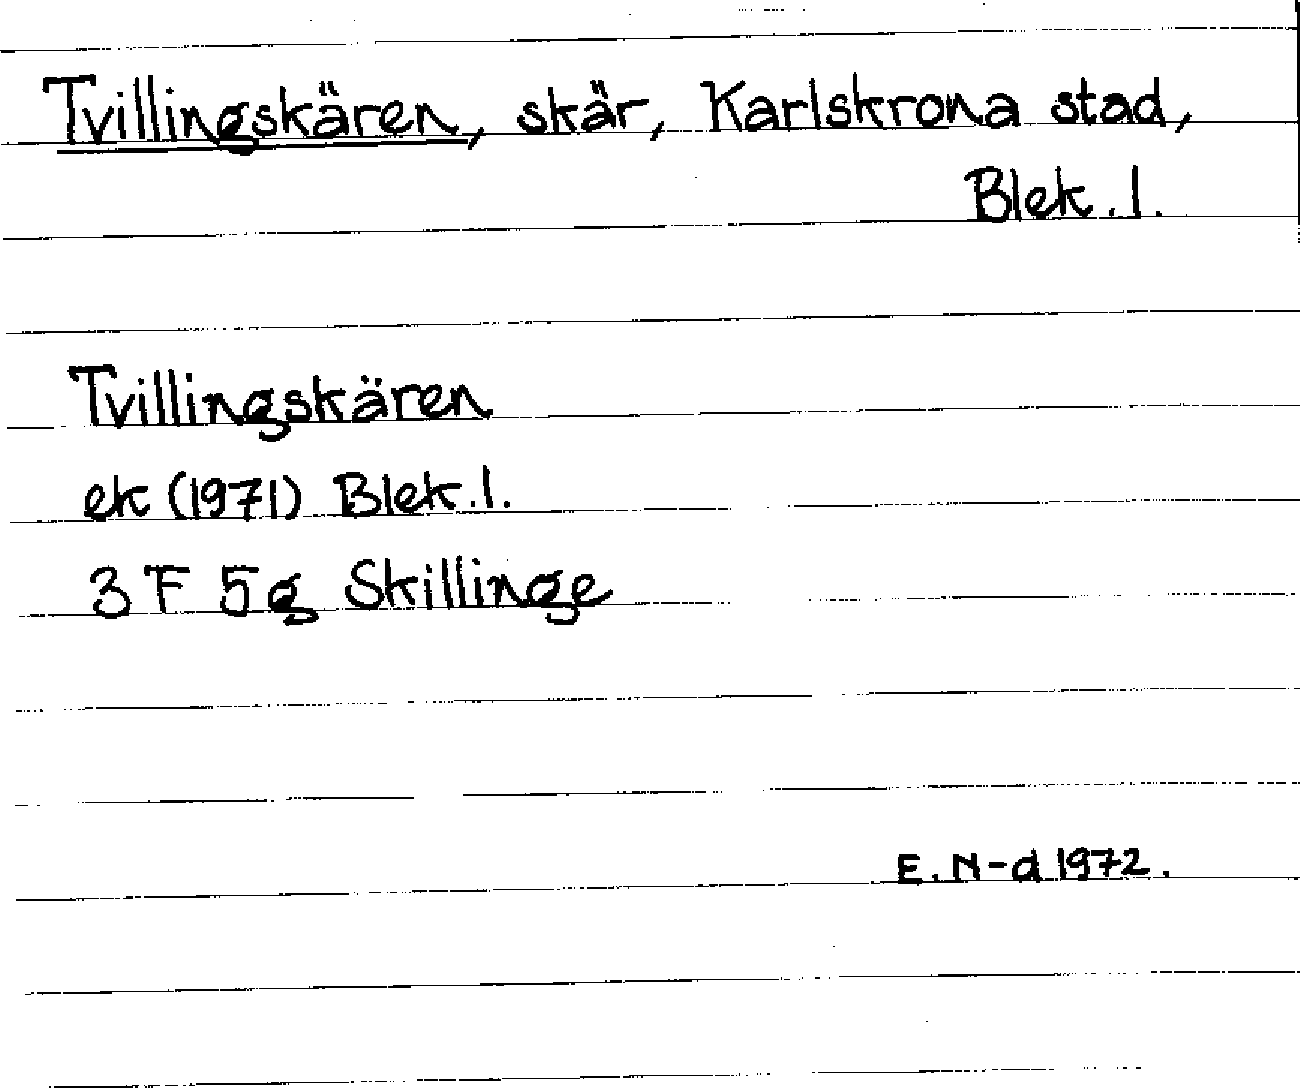 Tvillingskären, skär, Karlskrona stad,
Blek.l.
Tvillingskären
ek (1971) Blek.l.
3 F 5g Skillinge
E. N-d 1972.